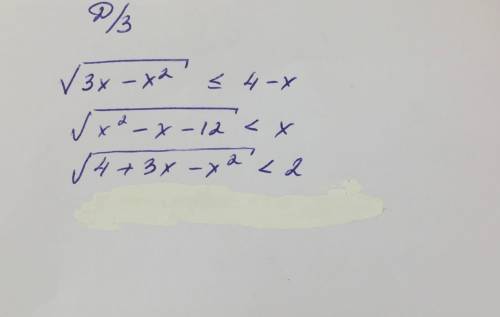 Д/З
√3x - x² ≤ 4 - x
√x² - x - 12 < x
√4 + 3x - x² < 2